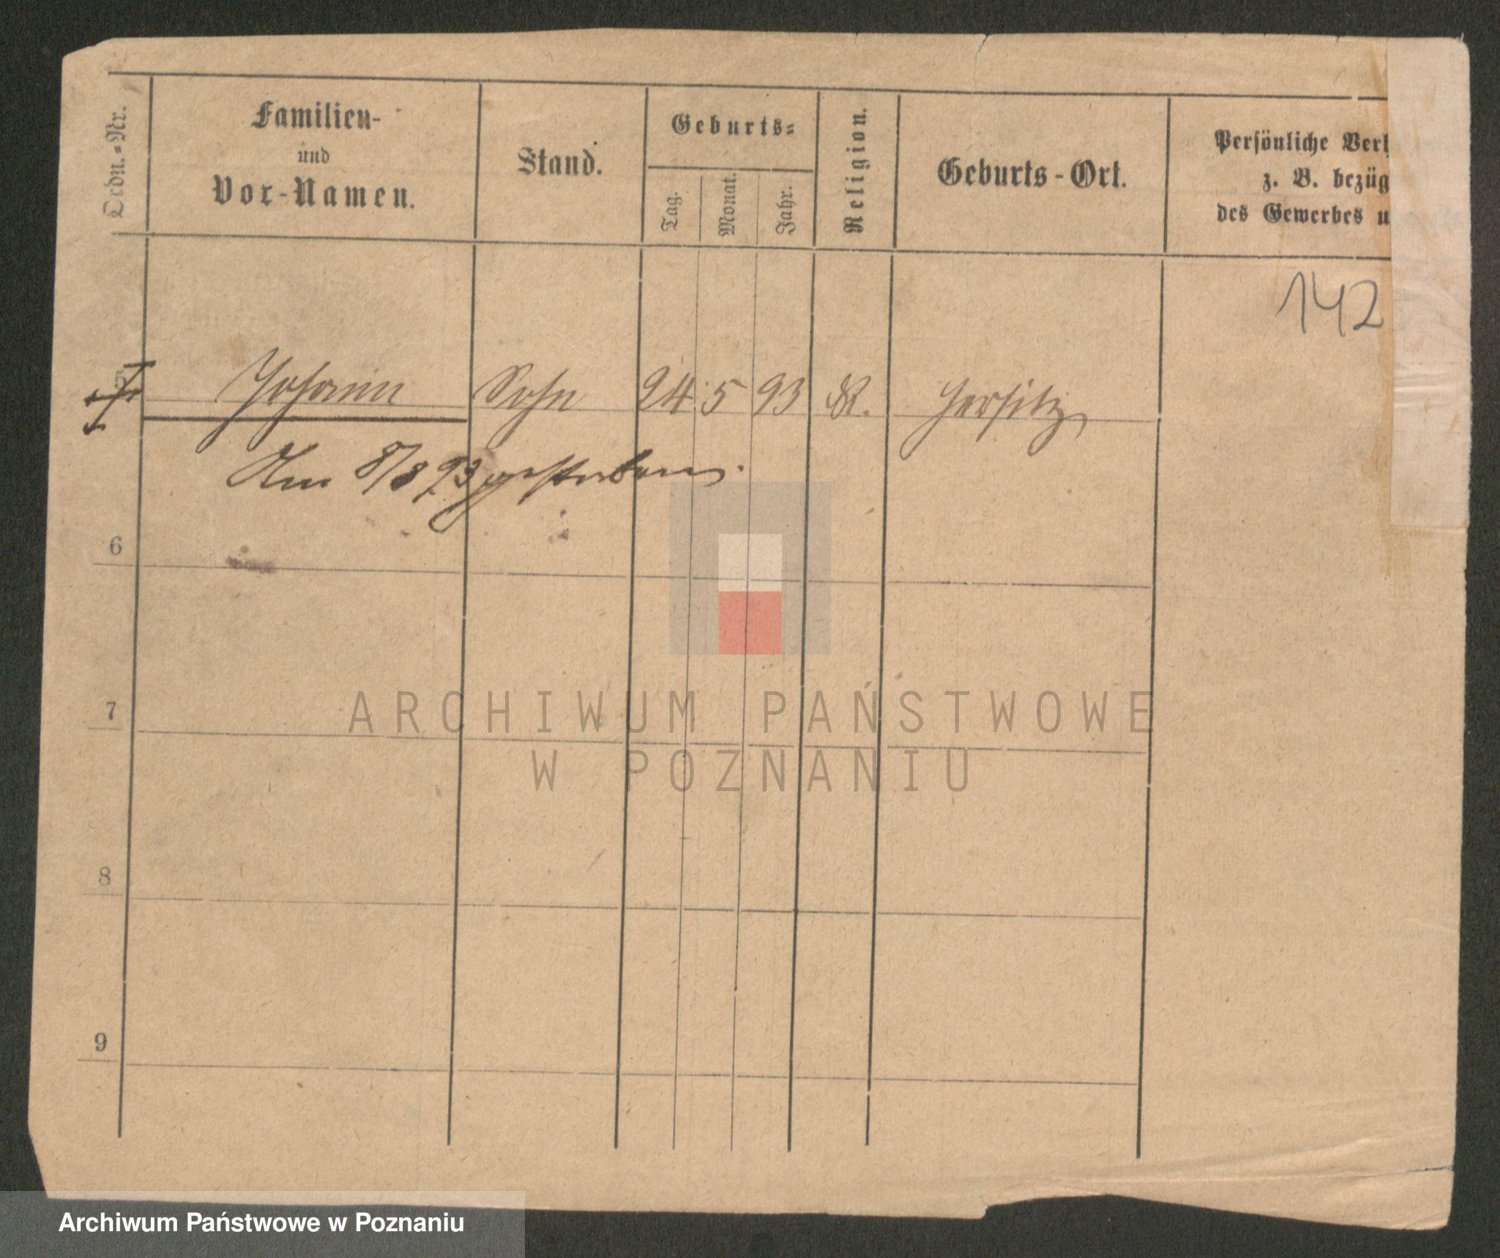 Ordn.-Nr.
Familien-
und
Vor-Namen.
Stand.
Geburts-
Tag.
Monat.
Jahr.
Religion.
Geburts-Ort.
Persönliche Verh
z. B. bezüg
des Gewerbes u
142
Johann Sohn 24 5 93 K. Jersitz
Am 8/8 93 gestorben.
6
7
8
9
ARCHIWUM PAŃSTWOWE
W POZNANIU
Archiwum Państwowe w Poznaniu